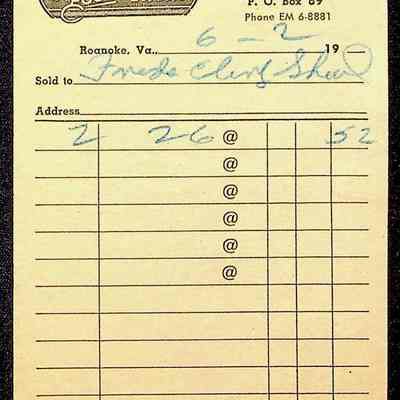 P. O. Box 69
Phone EM 6-8881
Roanoke, Va., 6 - 2 19 —
Sold to
Address
2 26 @ 52
@
@
@
@
@